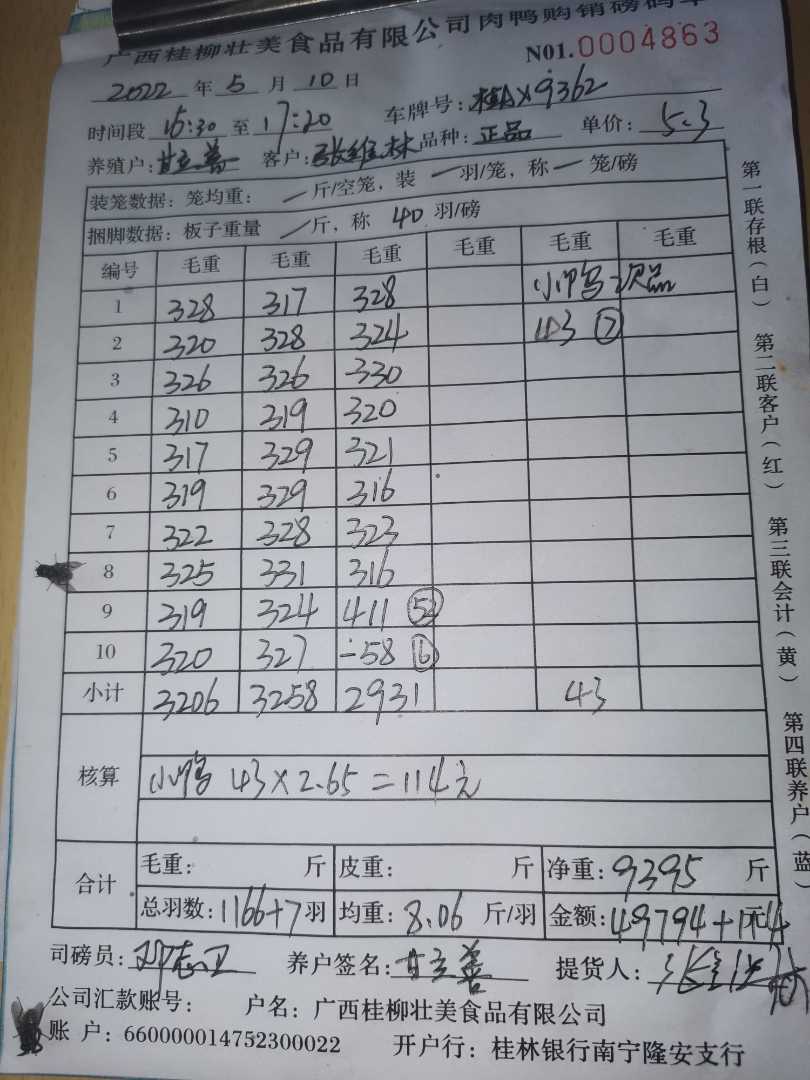 广西桂柳壮美食品有限公司肉鸭购销磅码单
N01.0004863
2022年5月10日
时间段16:30至17:20 车牌号:桂AX9362
养殖户:甘立善 客户:张维林 品种:正品 单价:5.3
装笼数据:笼均重:一斤/空笼,装一羽/笼,称一笼/磅
捆脚数据:板子重量一斤,称40羽/磅
编号 毛重 毛重 毛重 毛重 毛重 毛重
1 328 317 328 小鸭 次品
2 320 328 324 43 ⑦
3 326 326 330
4 310 319 320
5 317 329 321
6 319 329 316
7 322 328 323
8 325 331 316
9 319 324 411 52
10 320 327 -58 16
小计 3206 3258 2931 43
核算 小鸭 43×2.65=114元
合计 毛重: 斤 皮重: 斤 净重:9395斤
总羽数:1166+7羽 均重:8.06斤/羽 金额:49794+114元
司磅员:邓志卫 养户签名:甘立善 提货人:张维林
公司汇款账号: 户名:广西桂柳壮美食品有限公司
账户:660000014752300022 开户行:桂林银行南宁隆安支行
第一联存根(白) 第二联客户(红) 第三联会计(黄) 第四联养户(蓝)